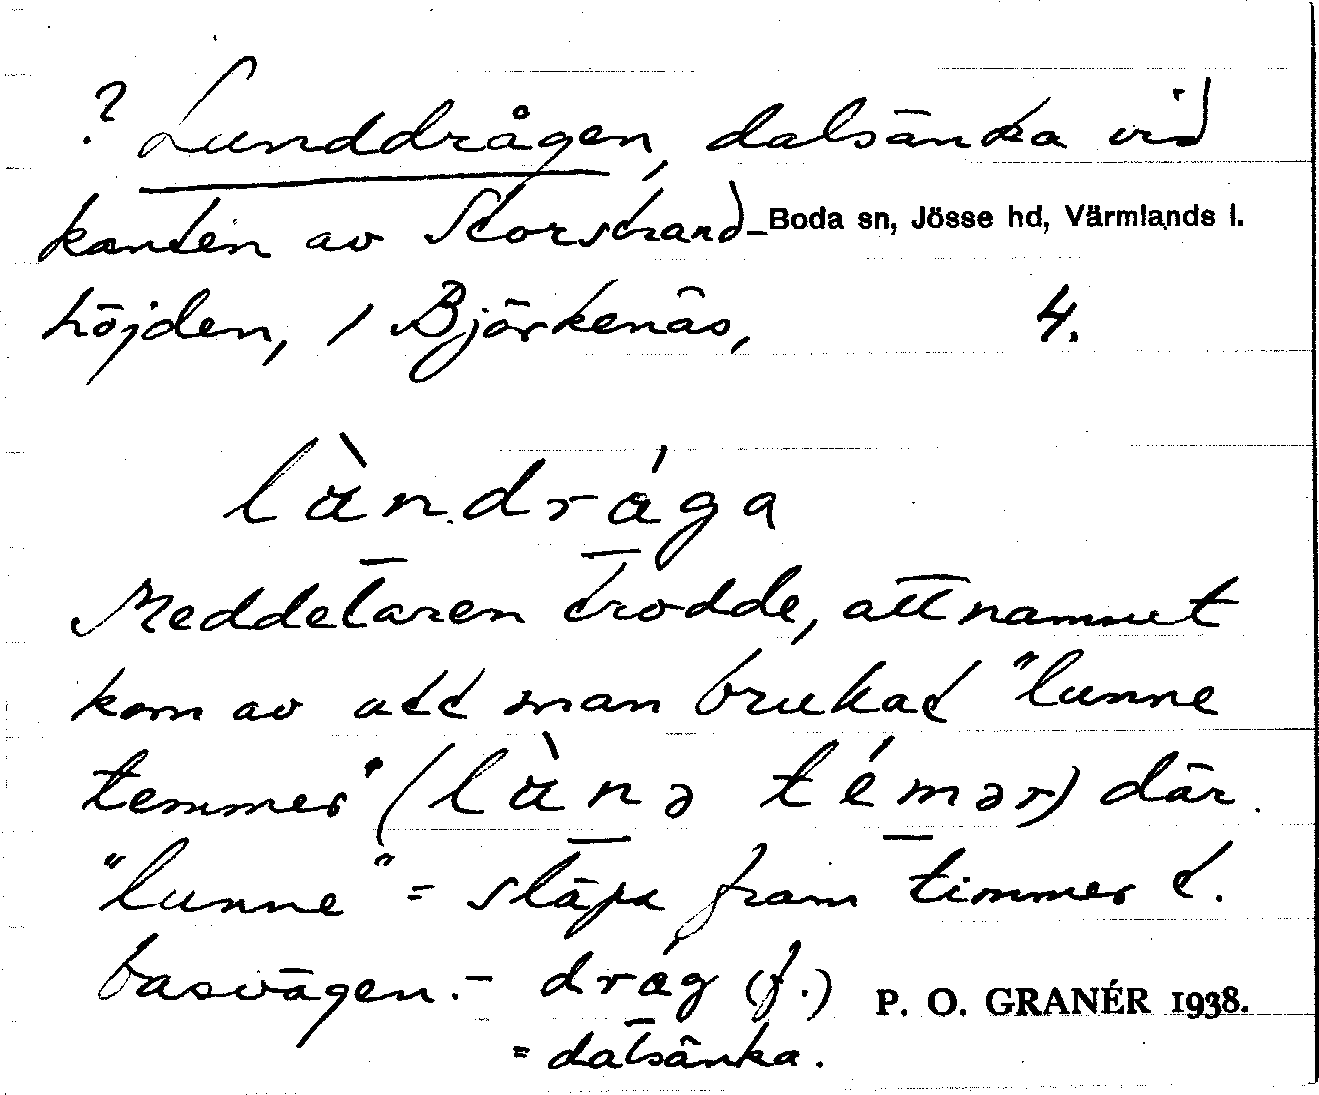 ? Lunddrågen, dalsänka vid
kanten av Storstrand-
Boda sn, Jösse hd, Värmlands l.
höjden, / Björkenäs,
4.
lὰndrága
Meddelaren trodde, att namnet
kom av att man brukat "lunne
temmer" (lὰnə témər) där
"lunne" = släpa fram timmer t.
basvägen. - dråg (f.)
= dalsänka.
P. O. GRANÉR 1938.